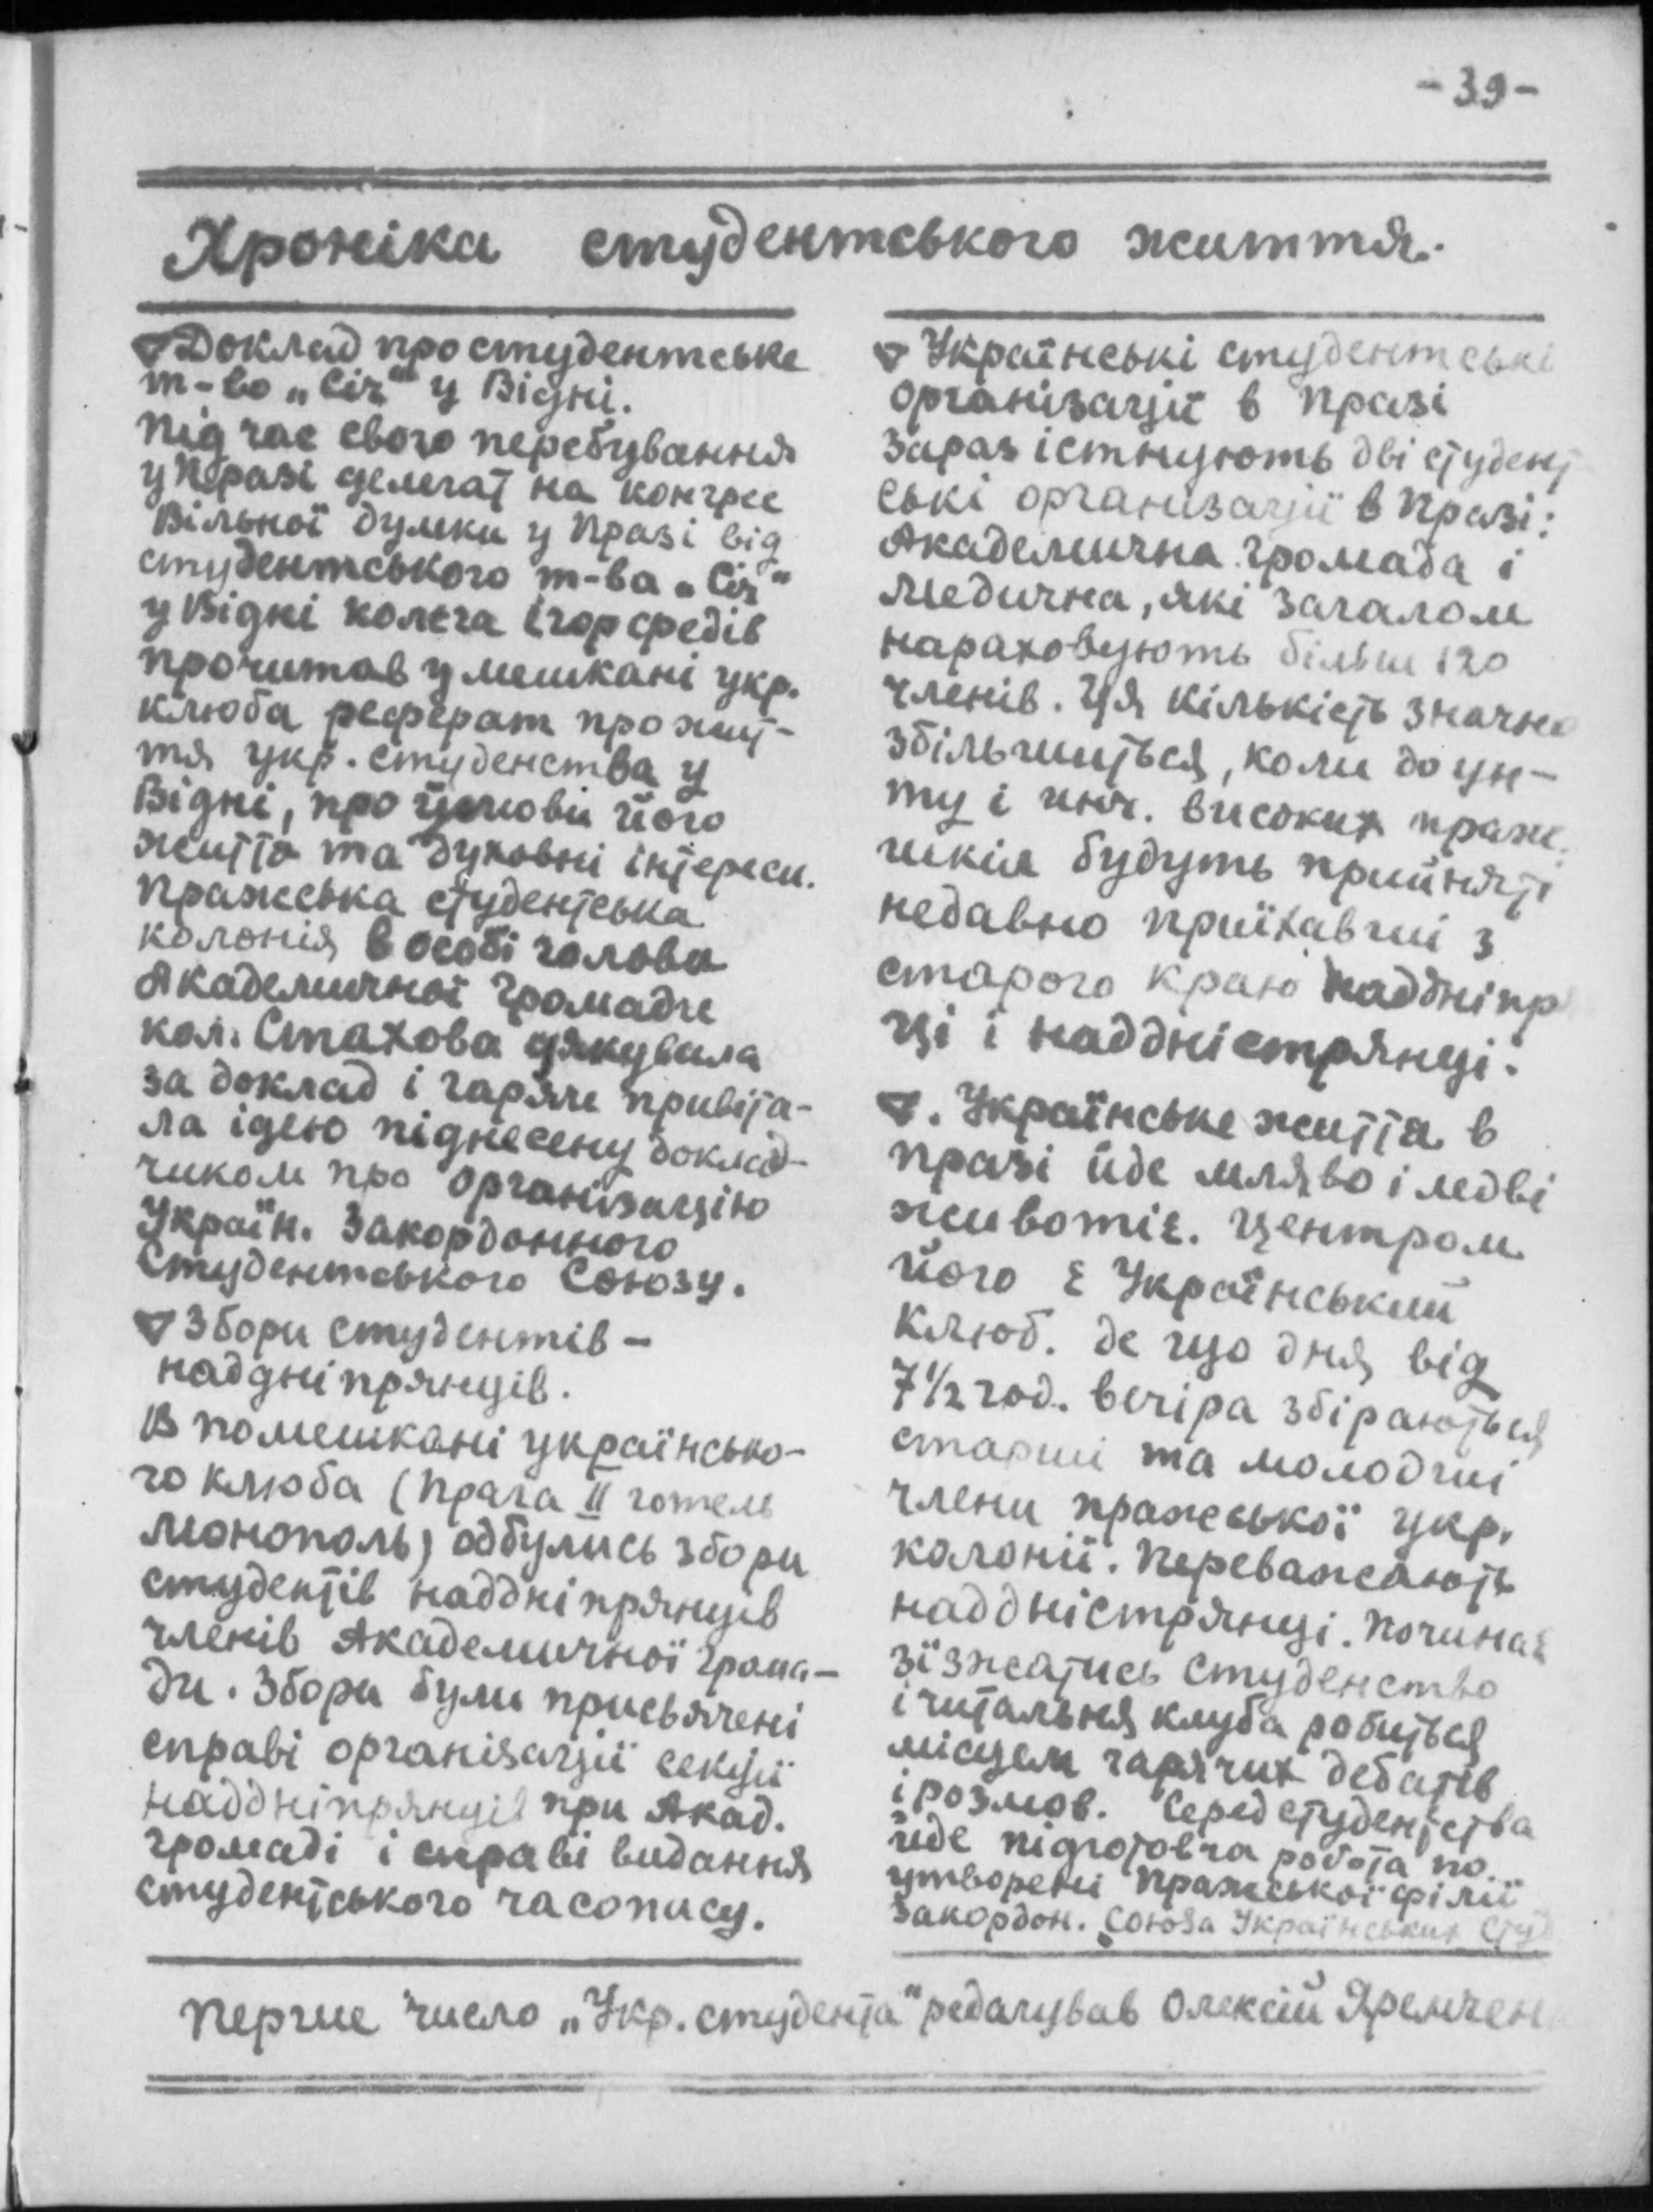 - 39 -
Хроніка студентського життя.
Доклад про студентське
т-во „Січ" у Відні.
Під час свого перебування
у Празі делегат на конгрес
Вільної думки у Празі від
студентського т-ва „Січ"
у Відні колєга Ігор Федів
прочитав у мешкані укр.
клюба реферат про жит-
тя укр. студенства у
Відні, про умови його
життя та духовні інтереси.
Пражська студентська
колонія в особі голови
Академичної Громади
кол. Стахова дякувала
за доклад і гаряче привіта-
ла ідею піднесену доклад-
чиком про організацію
Україн. Закордонного
Студентського Союзу.
Збори студентів -
наддніпрянців.
В помешкані українсько-
го клюба (Прага II готель
Монополь) одбулись збори
студентів наддніпрянців
членів Академичної Грома-
ди. Збори були присвячені
справі організації секції
наддніпрянців при Акад.
громаді і справі видання
студентського часопису.
Українські студентські
організації в Празі
Зараз істнують дві студент
ські організації в Празі:
Академична громада і
Медична, які загалом
нараховують більш 120
членів. Ця кількість значно
збільшиться, коли до ун-
ту і инч. високих праж.
шкіл будуть прийняті
недавно приїхавші з
старого краю наддніпр
ці і наддністрянці.
Українське життя в
Празі йде мляво і ледві
животіє. Центром
його є Український
Клюб. де що дня від
7½ год. вечіра збіраються
старші та молодші
члени пражської укр.
колонії. Переважають
наддністрянці. Починає
зїзжатись студенство
і читальня клуба робиться
місцем гарячих дебатів
і розмов. Серед студентства
йде підготовча робота по
утворені Пражської філії
Закордон. Союза Українських Студ
Перше число „Укр. студента" редагував Олексій Яремчен